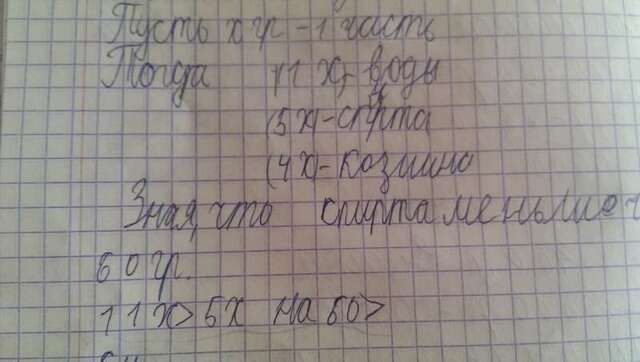 Пусть x гр - 1 часть
Тогда (11x)- воды
(5x)-спирта
(4x)-козиина
Зная, что спирта меньше
60 гр.
11x>5x на 60>